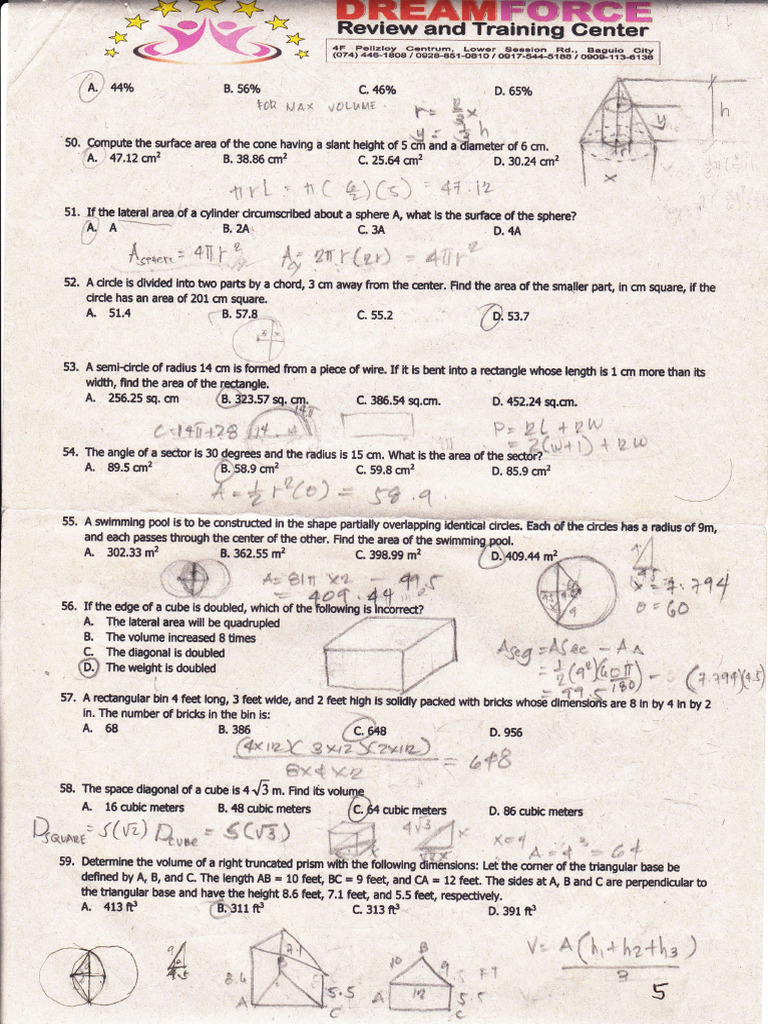 DREAMFORCE
Review and Training Center
4F Pelizloy Centrum, Lower Session Rd., Baguio City
(074) 446-1808 / 0928-851-0810 / 0917-544-5188 / 0909-113-6136
A. 44% B. 56% C. 46% D. 65%
FOR MAX VOLUME
h
y
r
x
50. Compute the surface area of the cone having a slant height of 5 cm and a diameter of 6 cm.
A. 47.12 cm² B. 38.86 cm² C. 25.64 cm² D. 30.24 cm²
πrL = π(6/2)(5) = 47.12
51. If the lateral area of a cylinder circumscribed about a sphere A, what is the surface of the sphere?
A. A B. 2A C. 3A D. 4A
A SPHERE = 4πr² A cy = 2πr(2r) = 4πr²
52. A circle is divided into two parts by a chord, 3 cm away from the center. Find the area of the smaller part, in cm square, if the
circle has an area of 201 cm square.
A. 51.4 B. 57.8 C. 55.2 D. 53.7
53. A semi-circle of radius 14 cm is formed from a piece of wire. If it is bent into a rectangle whose length is 1 cm more than its
width, find the area of the rectangle.
A. 256.25 sq. cm B. 323.57 sq. cm. C. 386.54 sq.cm. D. 452.24 sq.cm.
C=14π+28 14 14π P = 2L + 2W
= 2(W+1) + 2W
54. The angle of a sector is 30 degrees and the radius is 15 cm. What is the area of the sector?
A. 89.5 cm² B. 58.9 cm² C. 59.8 cm² D. 85.9 cm²
A = ½ r²(θ) = 58.9
55. A swimming pool is to be constructed in the shape partially overlapping identical circles. Each of the circles has a radius of 9m,
and each passes through the center of the other. Find the area of the swimming pool.
A. 302.33 m² B. 362.55 m² C. 398.99 m² D. 409.44 m²
A= 81π x2 - 99.5
= 409.44
x = 7.794
θ = 60
56. If the edge of a cube is doubled, which of the following is incorrect?
A. The lateral area will be quadrupled
B. The volume increased 8 times
C. The diagonal is doubled
D. The weight is doubled
Aseg = Asec - A△
= 99.5
57. A rectangular bin 4 feet long, 3 feet wide, and 2 feet high is solidly packed with bricks whose dimensions are 8 in by 4 in by 2
in. The number of bricks in the bin is:
A. 68 B. 386 C. 648 D. 956
(4x12)(3x12)(2x12)
8x4x2 = 648
58. The space diagonal of a cube is 4√3 m. Find its volume
A. 16 cubic meters B. 48 cubic meters C. 64 cubic meters D. 86 cubic meters
D SQUARE = S(√2) D CUBE = S(√3) 4√3 x x=4 A = 4³ = 64
59. Determine the volume of a right truncated prism with the following dimensions: Let the corner of the triangular base be
defined by A, B, and C. The length AB = 10 feet, BC = 9 feet, and CA = 12 feet. The sides at A, B and C are perpendicular to
the triangular base and have the height 8.6 feet, 7.1 feet, and 5.5 feet, respectively.
A. 413 ft³ B. 311 ft³ C. 313 ft³ D. 391 ft³
9 4.5 8.6 7.1 B 5.5 A C
10 B 9 FT A 12 5.5 C
V = A(h₁+h₂+h₃)
3
5